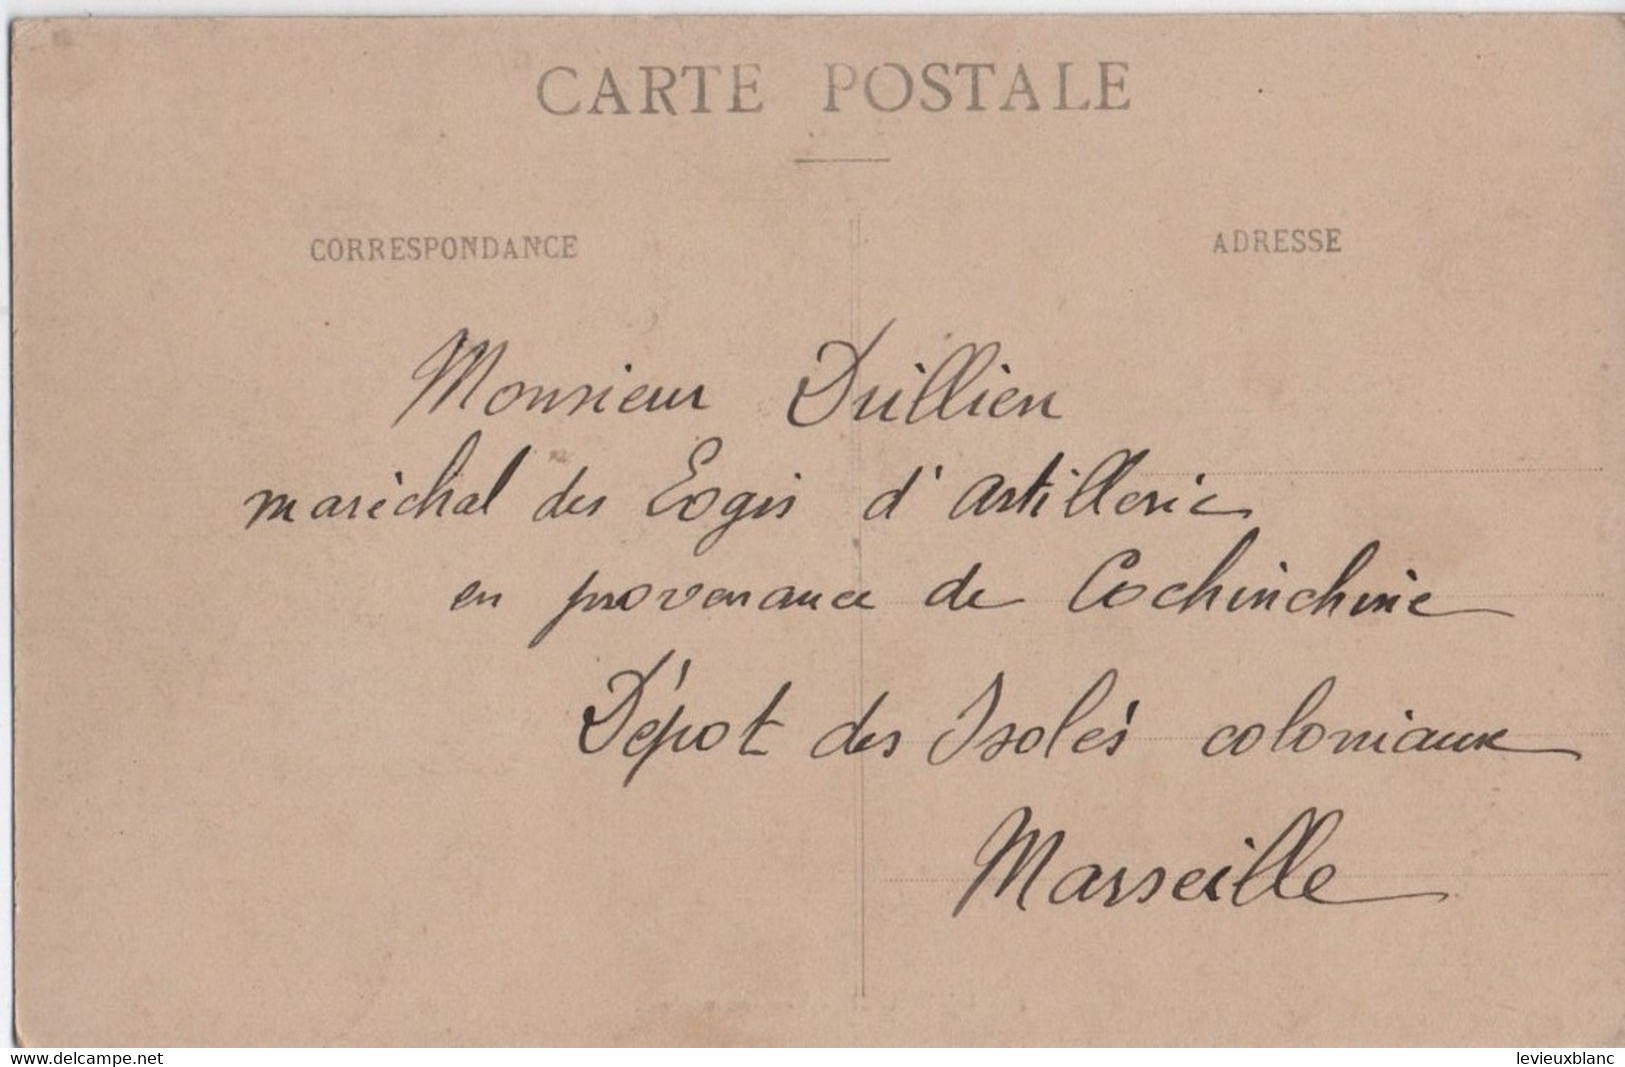 CARTE POSTALE
CORRESPONDANCE
ADRESSE
Monsieur Drillien
maréchal des Logis d'artillerie
en provenance de Cochinchine
Dépot des Isolés coloniaux
Marseille
www.delcampe.net
levieuxblanc